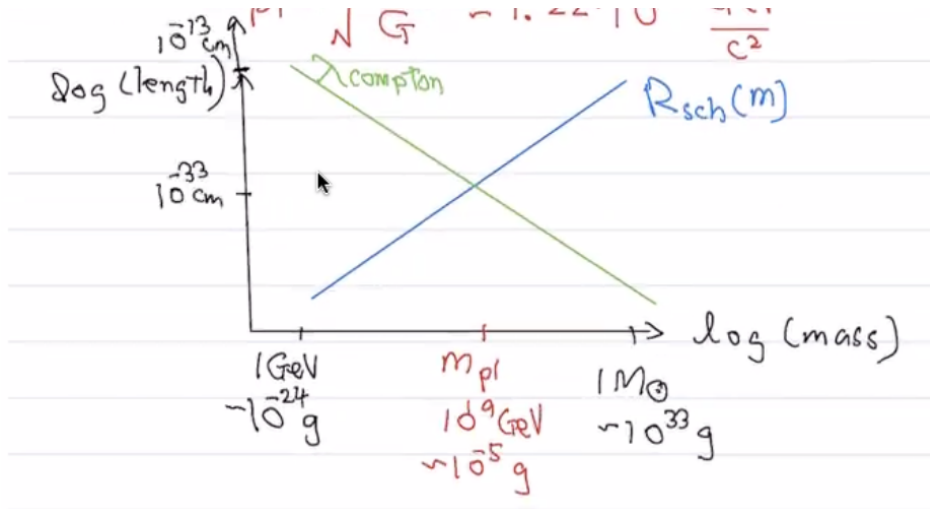 √G ~ 1.22·10
c²
10⁻¹³ cm
log (length)
λcompton
Rsch(m)
10⁻³³ cm
log (mass)
1GeV
~10⁻²⁴ g
mpl
10¹⁹ GeV
~10⁻⁵ g
1M☉
~10³³ g